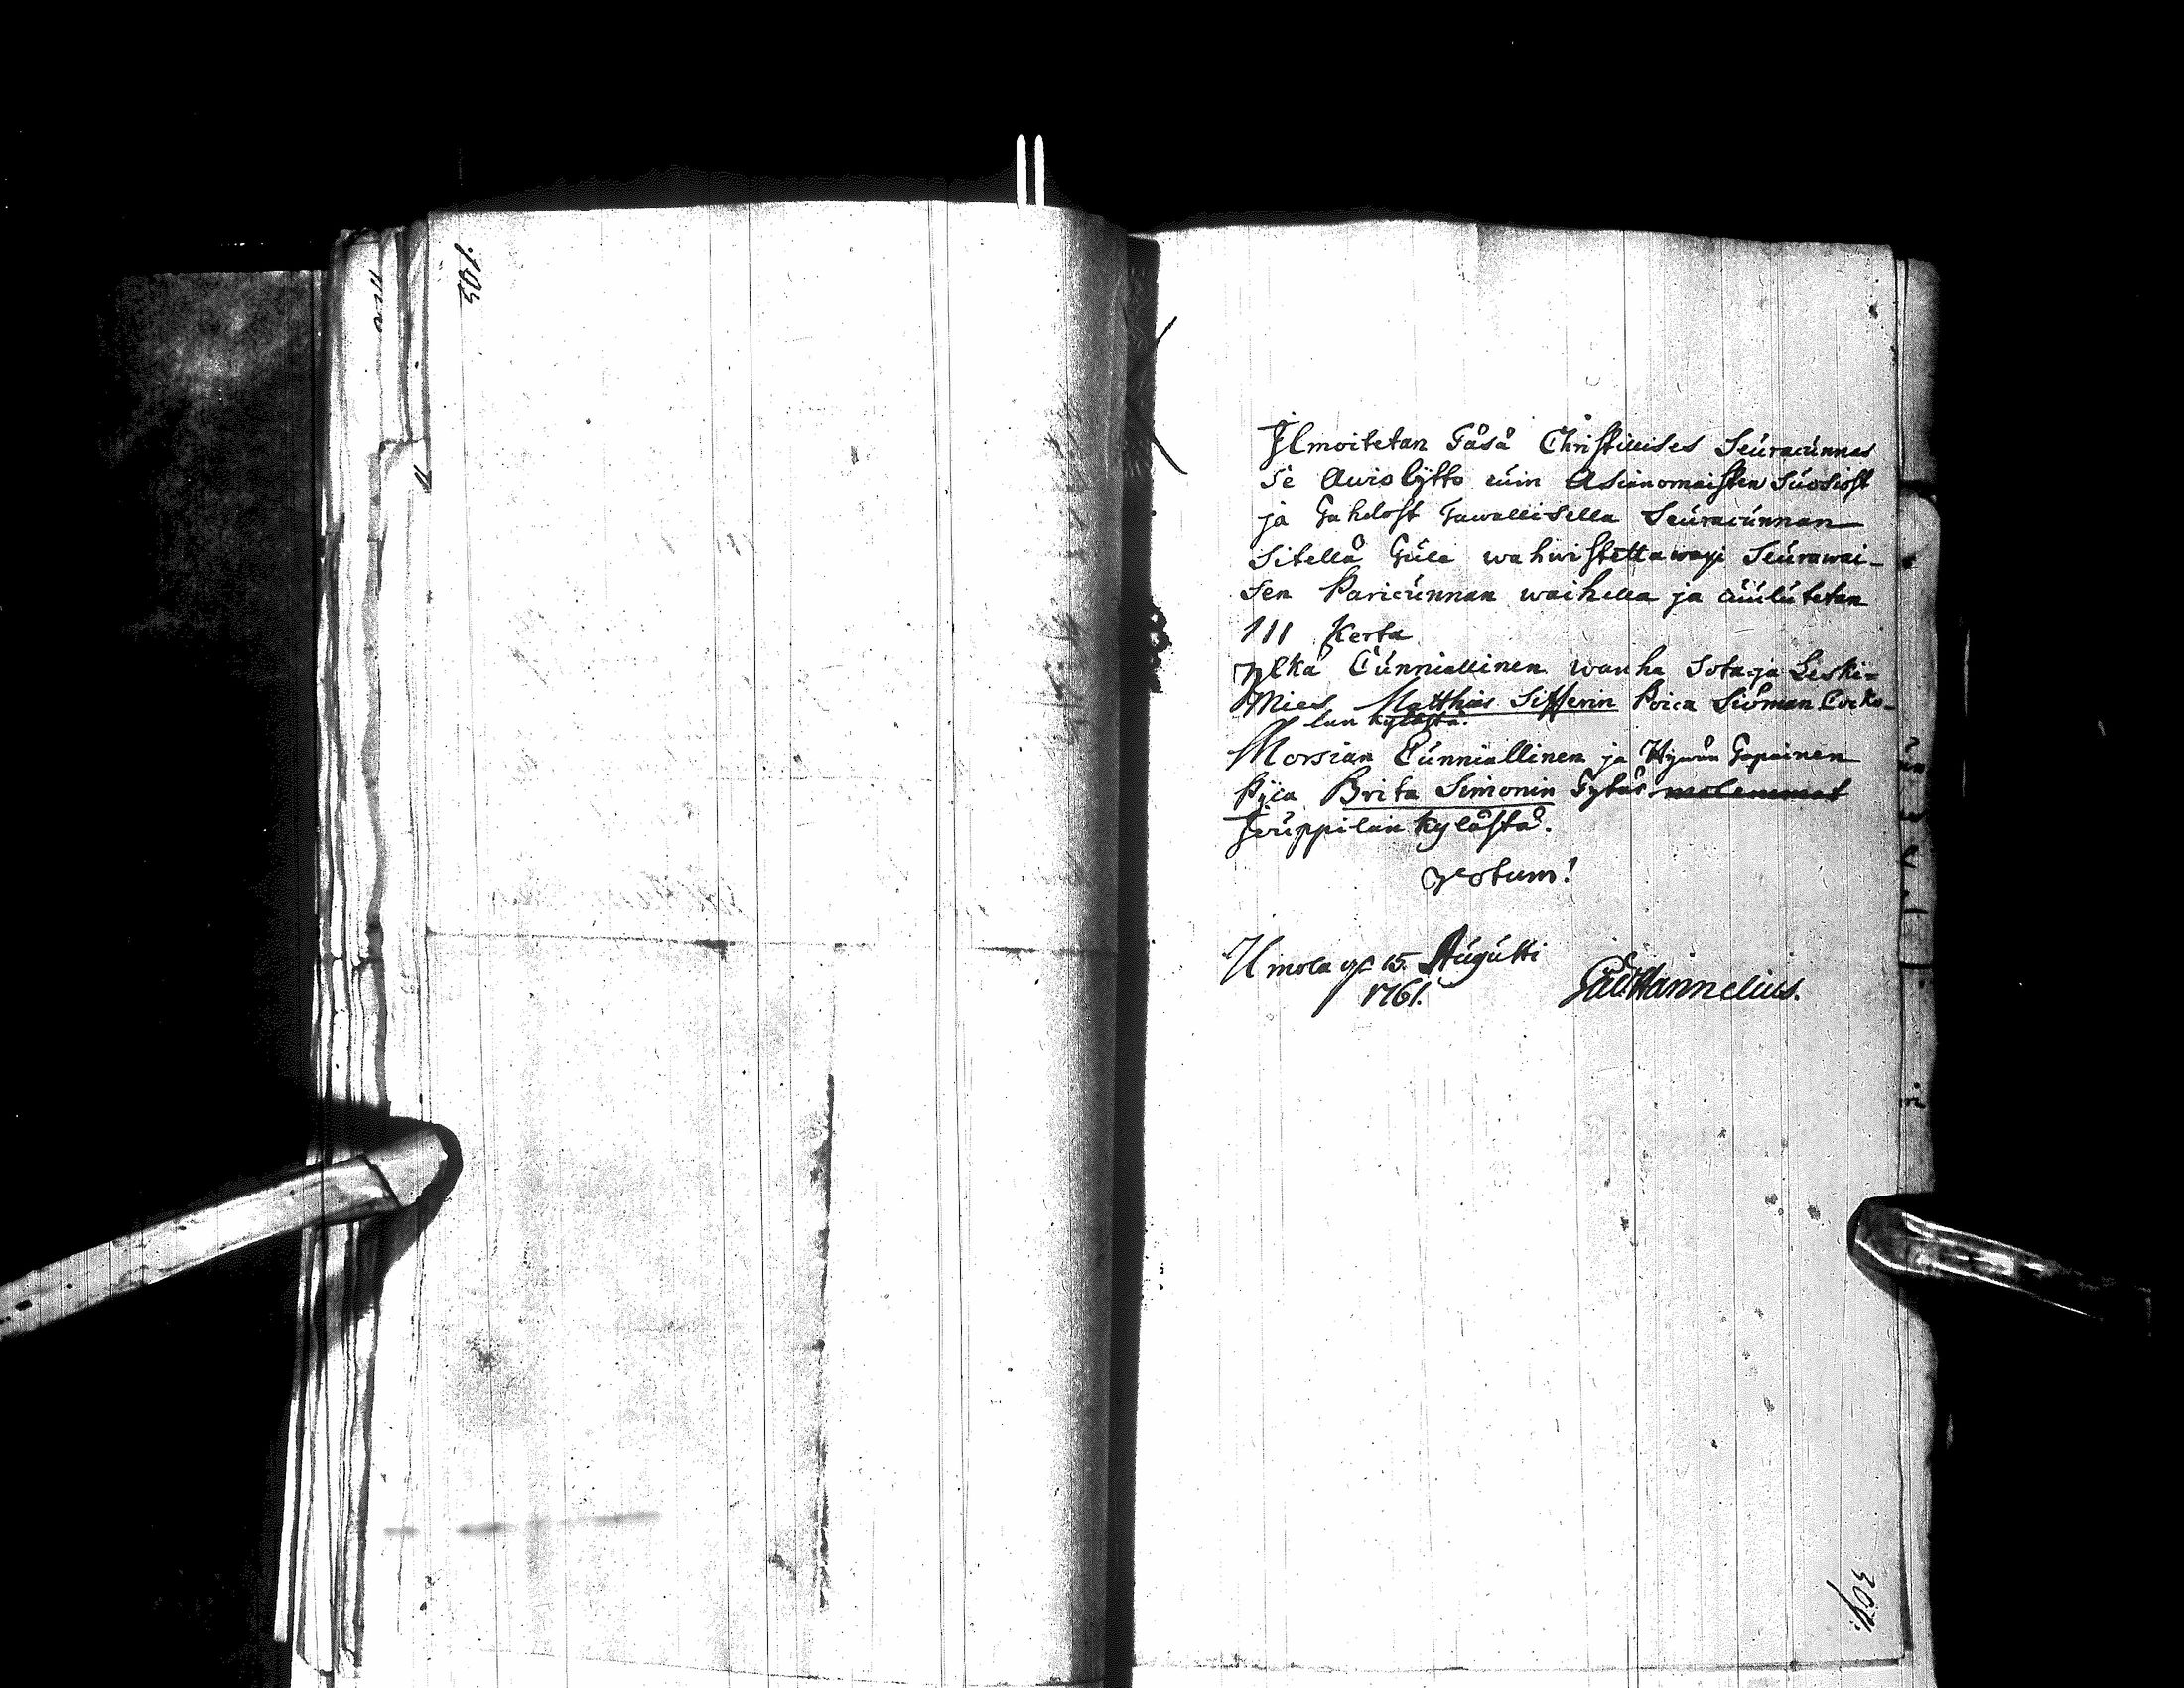 145
Ilmoitetan Täsä Christillises Seuracunnas
Se Awioskäsky cuin Asianomaisten Suosiost
ja Tahdost tawallisella Seuracunnan
Sitellä Tule wahwistettawaxi Seurawai-
sen Paricunnan waihella ja cuulutetan
III Kerta
Ylkä Cunniallinen wanha Sota ja Leski-
Mies Matthias Sifferin Poica Siöman
lan kylästä.
Morsian Cunniallinen ja Hywän Tapainen
Pijca Brita Simonin Tytär molemmat
Jouppilan kylästä.
Votum!
Ilmola 15. Augusti
1761.
Hannelius.